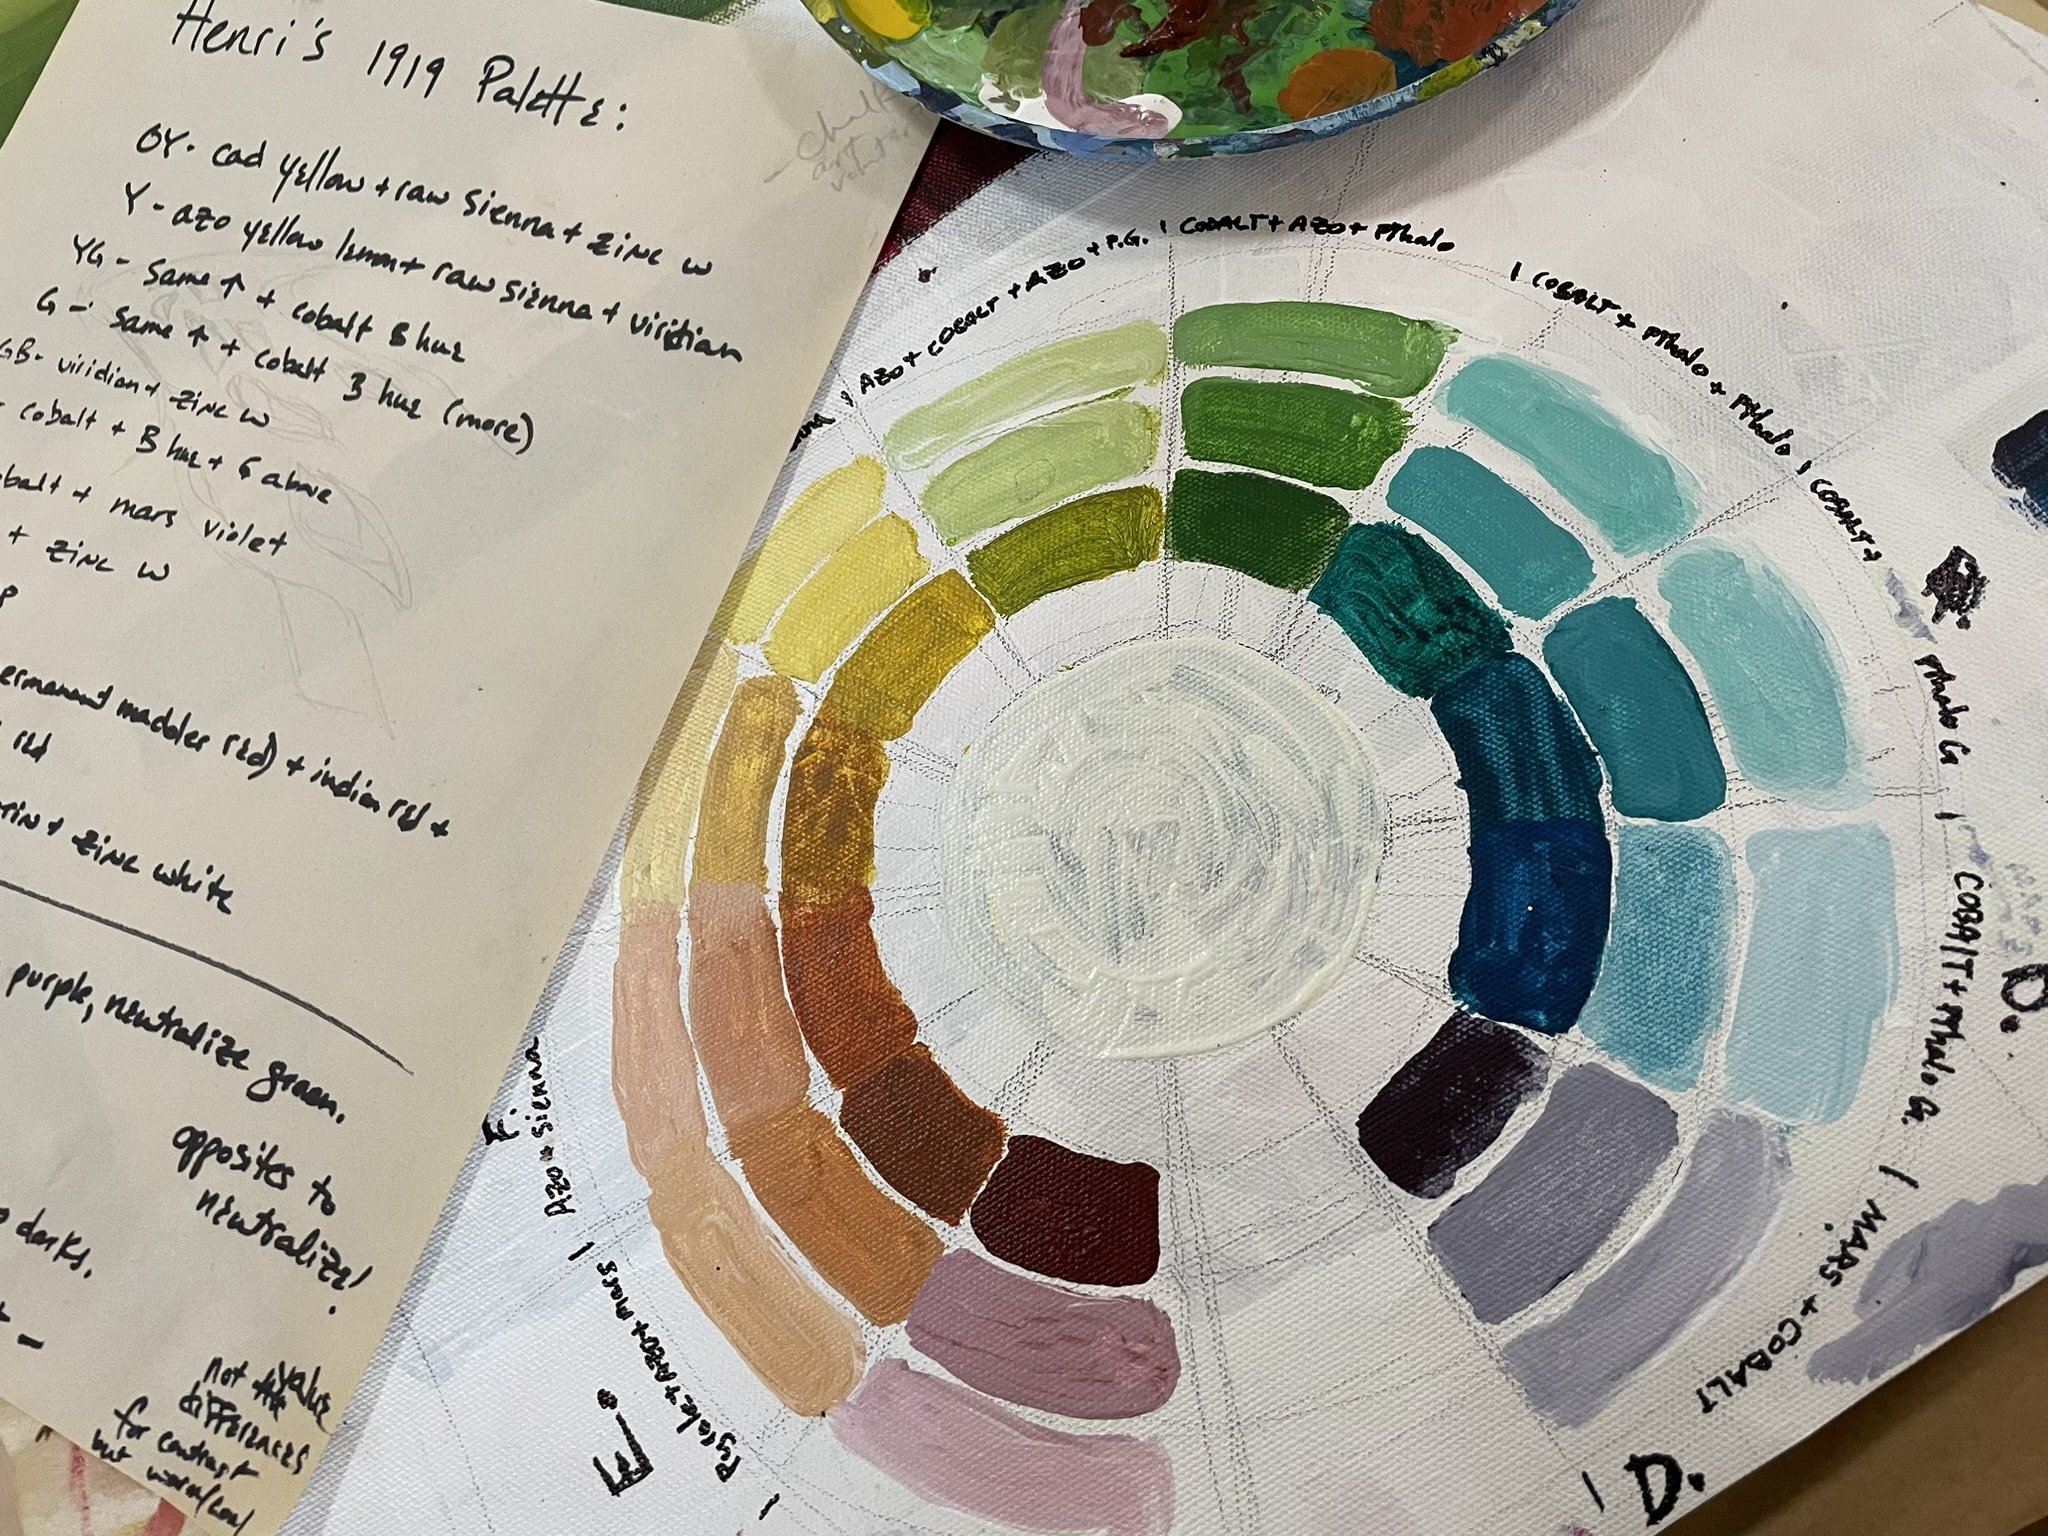 Henri's 1919 Palette:
OY- cad yellow + raw sienna + zinc w
Y - azo yellow lemon + raw sienna + viridian
YG - same ↑ + cobalt B hue
G - same ↑ + cobalt B hue (more)
GB- viridian + zinc w
cobalt + B hue + G above
balt + mars violet
+ zinc w
P
ermanant madder red) + indian red +
red
rin + zinc white
purple, neutralize green.
opposites to
neutralize!
o darks.
+ -
not value
differences
for contrast
but warm/cool
chalk
art
AZO + COBALT + AZO + P.G.
| COBALT + AZO + PThalo
| COBALT + PThalo + PThalo
| COBALT +
PThalo G
| COBALT + PThalo G.
D.
| MARS + COBALT
| D.
E.
| AZO + MARS
F.
AZO + Sienna